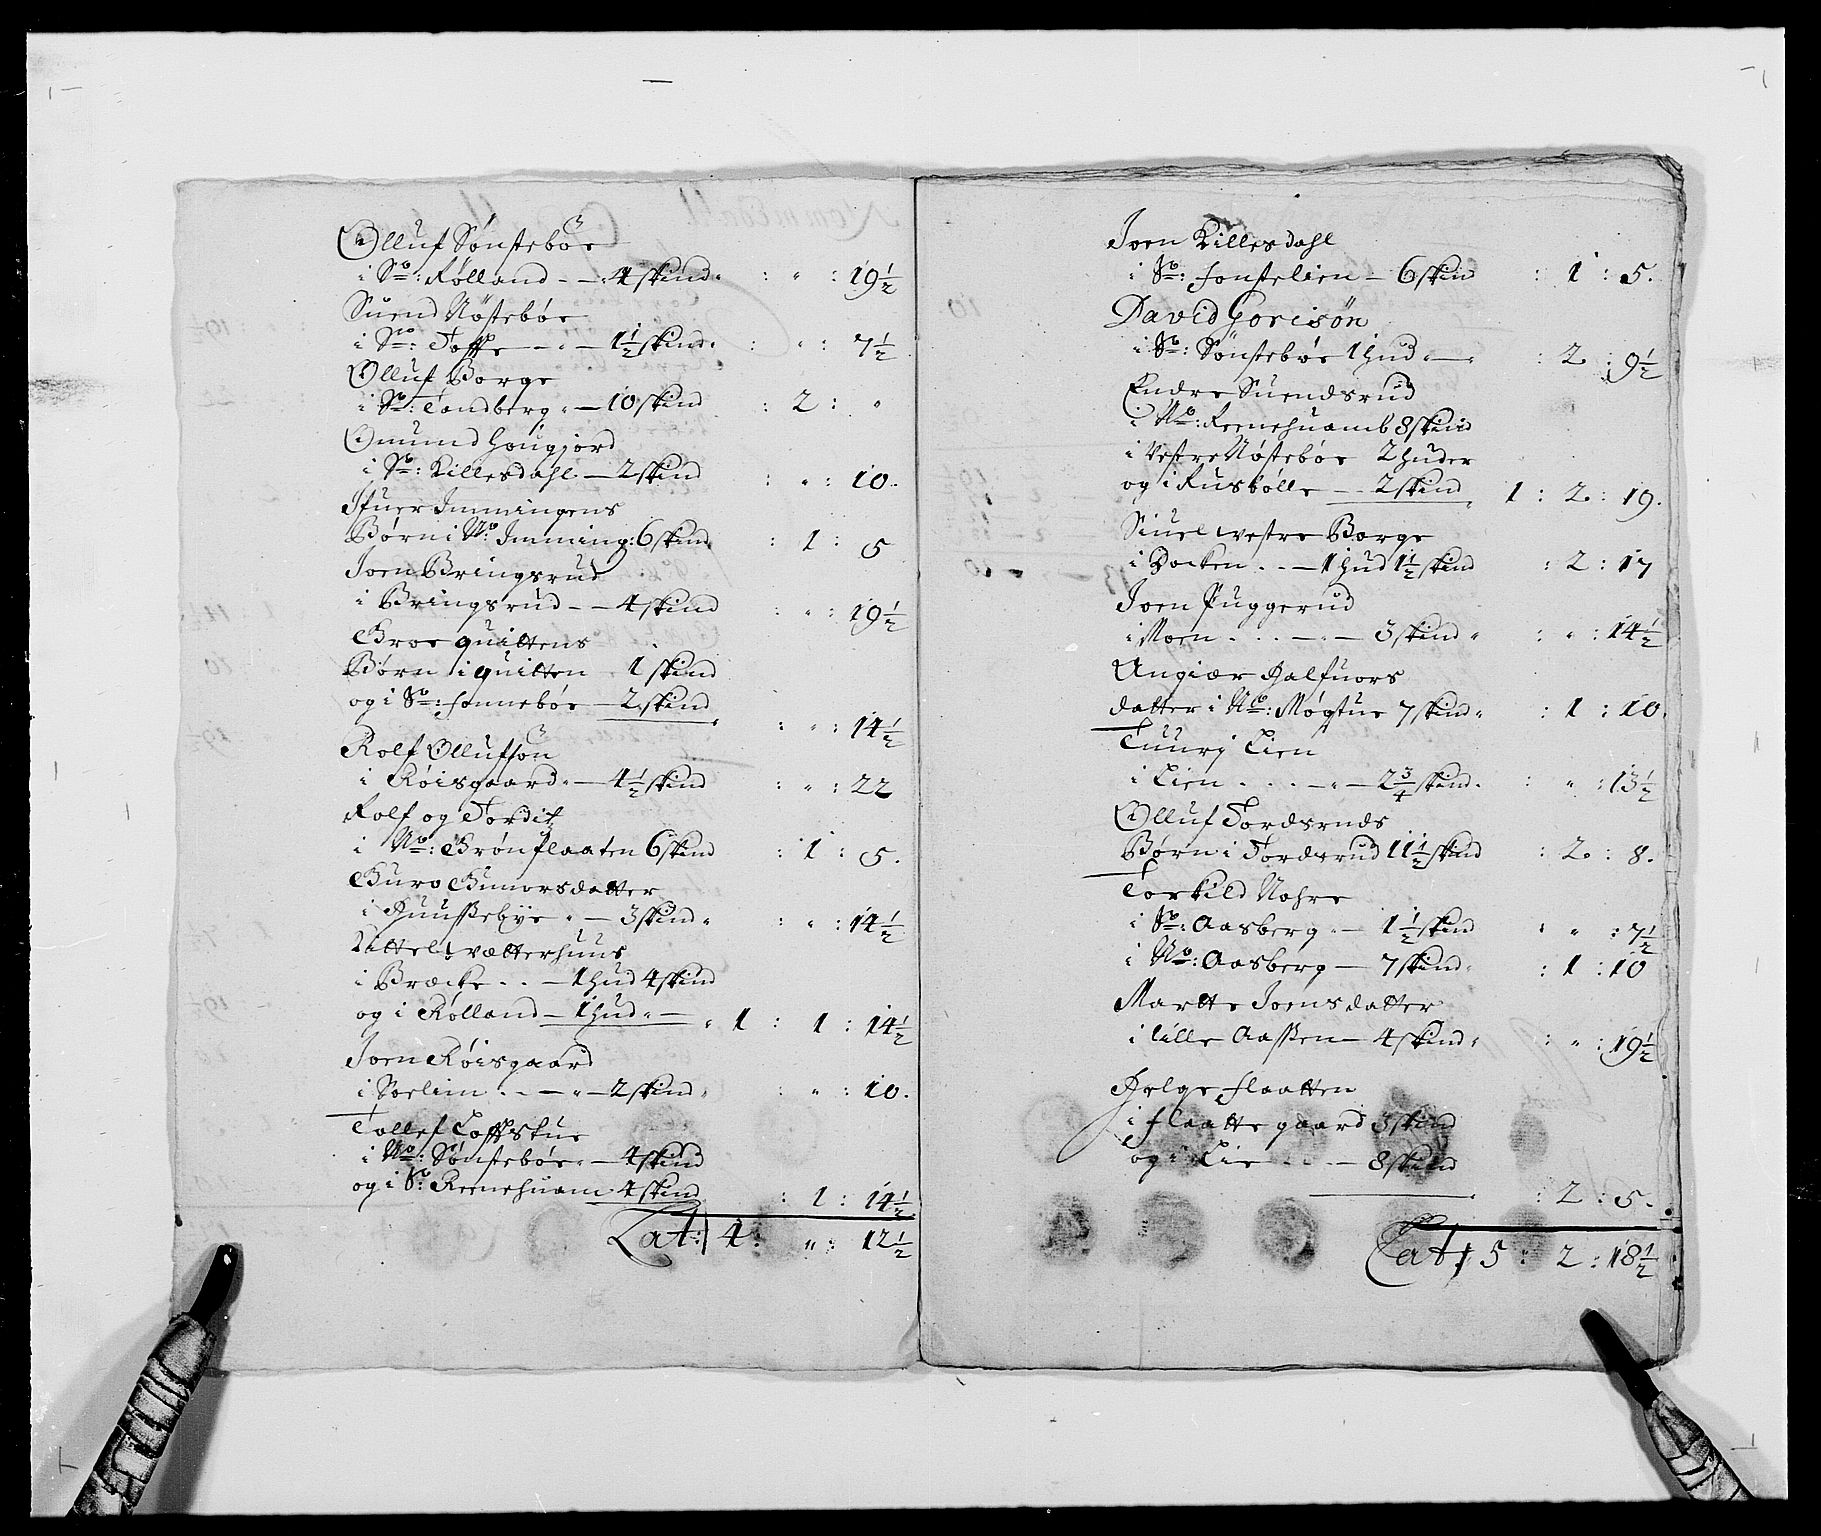 Olluf Sønstebøe
i Sø: Rølland - - 4 skind : " : 19½
Suend Nøstebøe
i Nø: Toffte - " - 1½ skind : " : 7½
Olluf Borge
i Sø: Tandberg " - 10 skind : 2 : "
Omund Hougjord
i Sø: Killesdahl - 2 skind : " : 10.
Ifuer Immingens
Børn i Nø: Imming: 6 skind : 1 : 5
Joen Bringsrud
i Bringsrud - - 4 skind : " : 19½
Groe quittens
Børn i quitten 1 skind
og i Sø: Hannebøe - 2 skind : " : 14½
Rolf Ollufsøn
i Røisgaard " - 4½ skind : " : 22
Rolf og Tordit
i Nø: Grønflaaten 6 skind : 1 : 5.
Guro Gunorsdatter
i - 3 skind " : " : 14½
Kittel vætterhuus
i Bræcke . . - 1 hud 4 skind
og i Rølland - 1 hud " - " 1 : 1 : 14½
Joen Røisgaard
i Sorlim . - - " - 2 skind " : " : 10.
Tollef Tofftskus
i Nø: Sønstebøe " - 4 skind
og i Sø: Reenehuam 4 skind : 1 : 14½
Lat: 4 : " : 12½
Joen Killesdahl
i Sø: Fønstelien - 6 skin : 1 : 5.
David Gorisøn
i Sø: Sønstebøe 1 hud " - " : 2 : 9½
Endre Suendsrud
i Nø: Reenehuamb 8 skind
i Vestre Nøstebøe 2 huder
og i Rusbølle - - 2 skind " 1 : 2 : 19.
Siuel westre Borge
i Docken . . - 1 hud 1½ skind : 2 : 17
Joen Puggerud
i Moen . . . - " - 3 skind " : " : 14½
Angiær Halfuors
datter i Nø: Møgstue 7 skind " : 1 : 10.
Tuurj Lien
i Lien . . . . - " - 2¾ skind . : " : 13½
Olluf Tordsruds
Børn i Tordsrud 11½ skind : 2 : 8.
Torkild Nohre
i Sø: Aasberg " - 1½ skind : " : 7½
i Nø: Aasberg - 7 skind " : 1 : 10
Martte Joensdatter
i lille Aasßen - 4 skind " : " : 19½
Helge Flaatten
i Flaatte gaard 3 skind
og i Lie - . . - 8 skind
: 2 : 5.
Lat: 5 : 2 : 18½